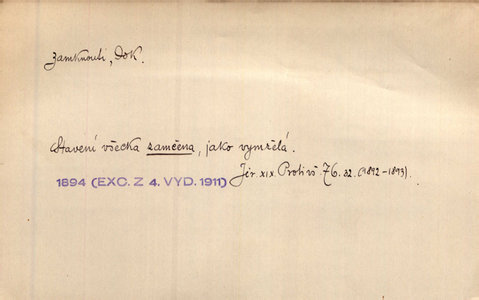 zamknouti, dok.
Stavení všecka zamčena, jako vymřelá.
Jir. XIX. Proti vš. 76. 32. (1892-1893).
1894 (EXC. Z 4. VYD. 1911)